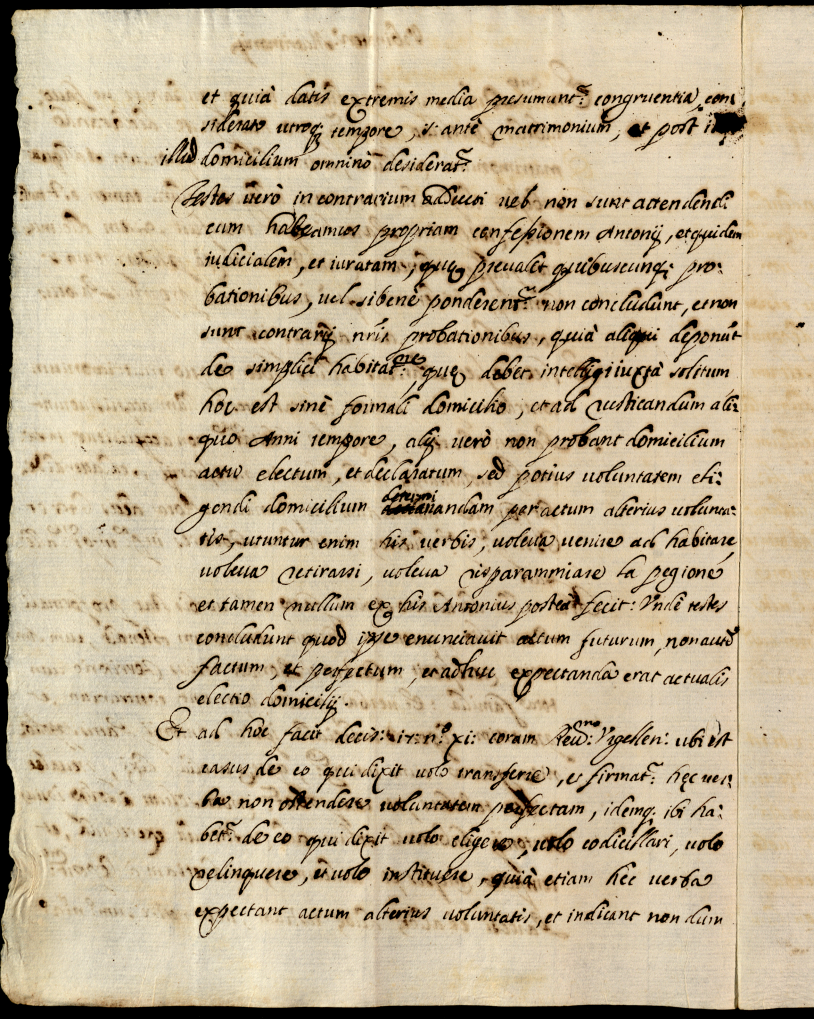 et quià datis extremis media presumunt.r congruentia, con
siderato utroq; tempore, s: antè matrimonium, et post
illud domicilium omninò desiderat.r
Testes verò in contrarium adducti vel non sunt attendendi
cum habeamus propriam confessionem Antonij, et quidem
iudicialem, et iuratam, que prevalet quibuscunq; pro:
bationibus, vel si benè ponderent.r non concludunt, et non
sunt contrarij nris probationibus, quià aliqui deponūt
de simplici habitat.ne, que debet intelligi iuxtà solitum
hoc est sinè formali domicilio, et ad rusticandum ali:
quo Anni tempore, alij verò non probant domicilium
actu electum, et declaratum, sed potius voluntatem eli:
gendi domicilium andam per actum alterius volunta:
tis, utuntur enim his verbis, voleva venire ad habitare
voleva retirarsi, voleva risparammiare la pegione
et tamen nullum ex his Antonius posteà fecit: Undè testes
concludunt quod ipse enunciavit actum futurum, non autē
factum, et perfectum, et adhuc expectanda erat actualis
electio domicilij.
Et ad hoc facit decis: n.o xi: coram Reu.mo Vigellen: ubi est
casus de eo qui dixit volo transferre, et firmat.r hęc ver:
ba non ostendere voluntatem perfectam, idemq; ibi ha:
bet.r de eo qui dixit volo eligere, volo codicillari, volo
relinquere, et volo instituere, quià etiam hęc verba
expectant actum alterius voluntatis, et indicant non dum